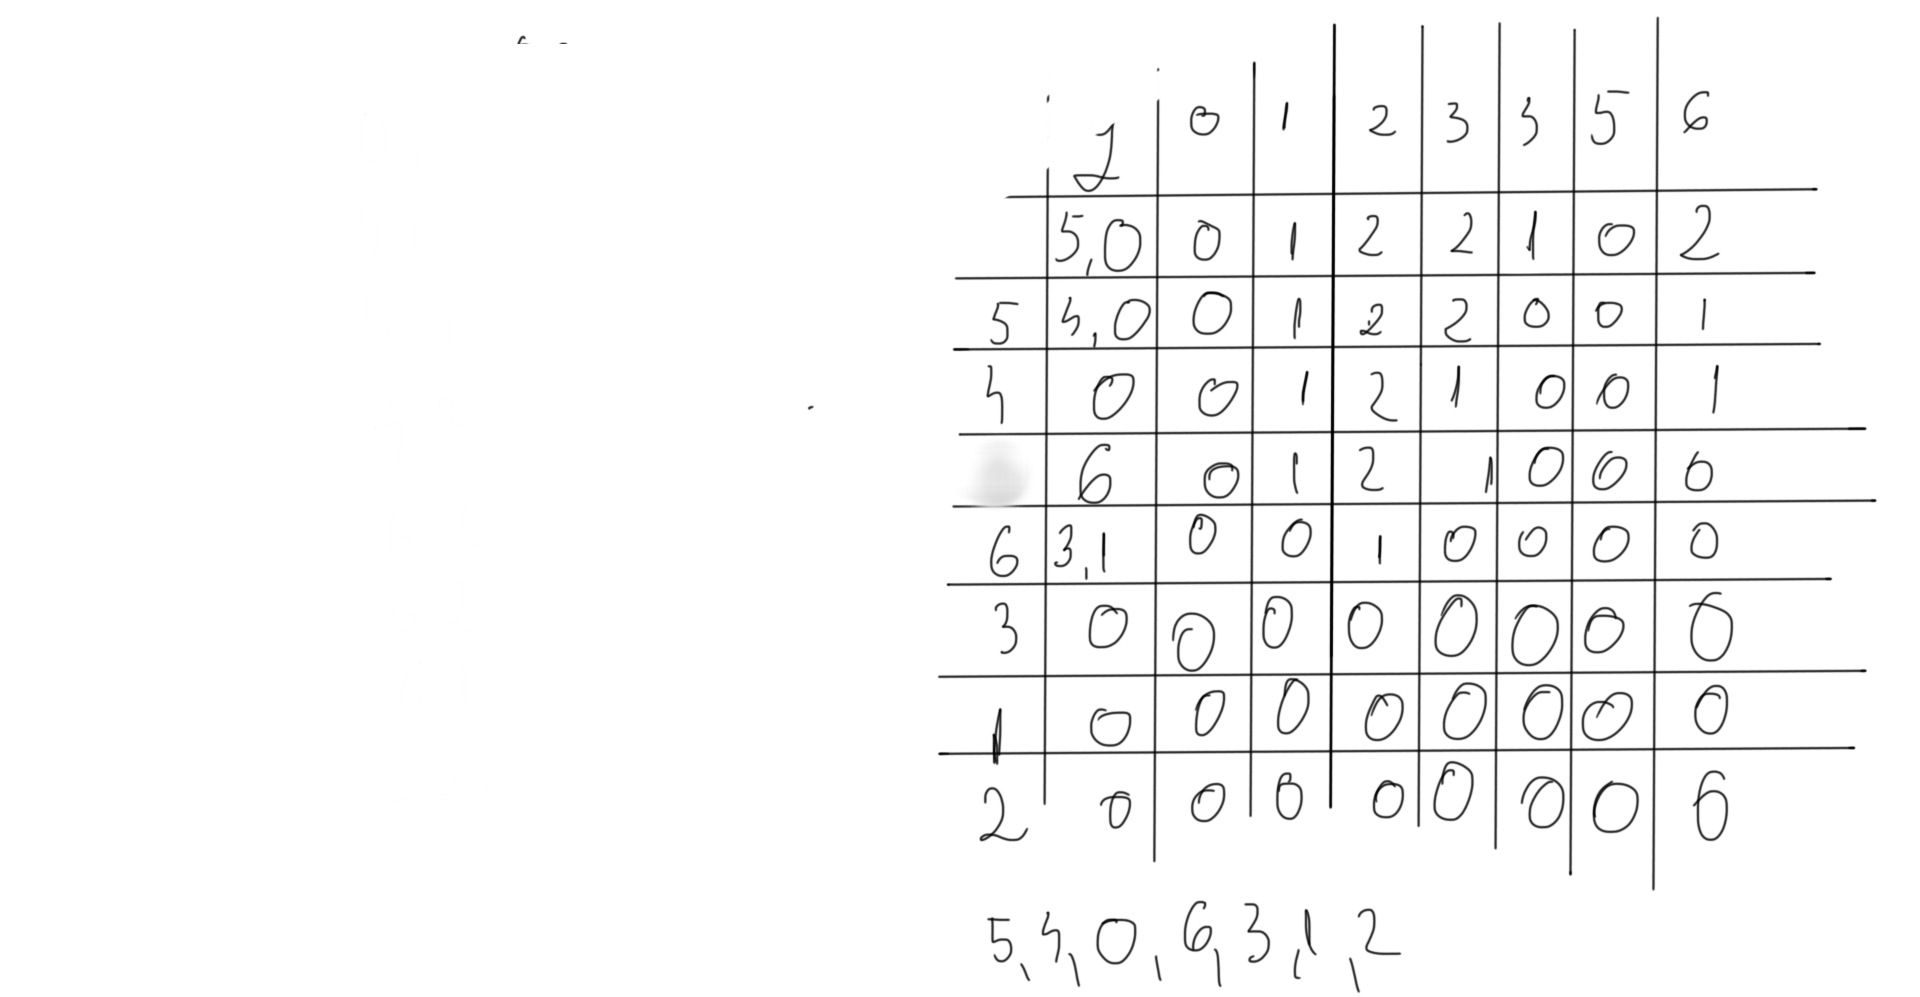 0 1 2 3 4 5 6
5,0 0 1 2 2 1 0 2
5 4,0 0 1 2 2 0 0 1
4 0 0 1 2 1 0 0 1
6 0 1 2 1 0 0 0
6 3,1 0 0 1 0 0 0 0
3 0 0 0 0 0 0 0 0
1 0 0 0 0 0 0 0 0
2 0 0 0 0 0 0 0 0
5,4,0,6,3,1,2